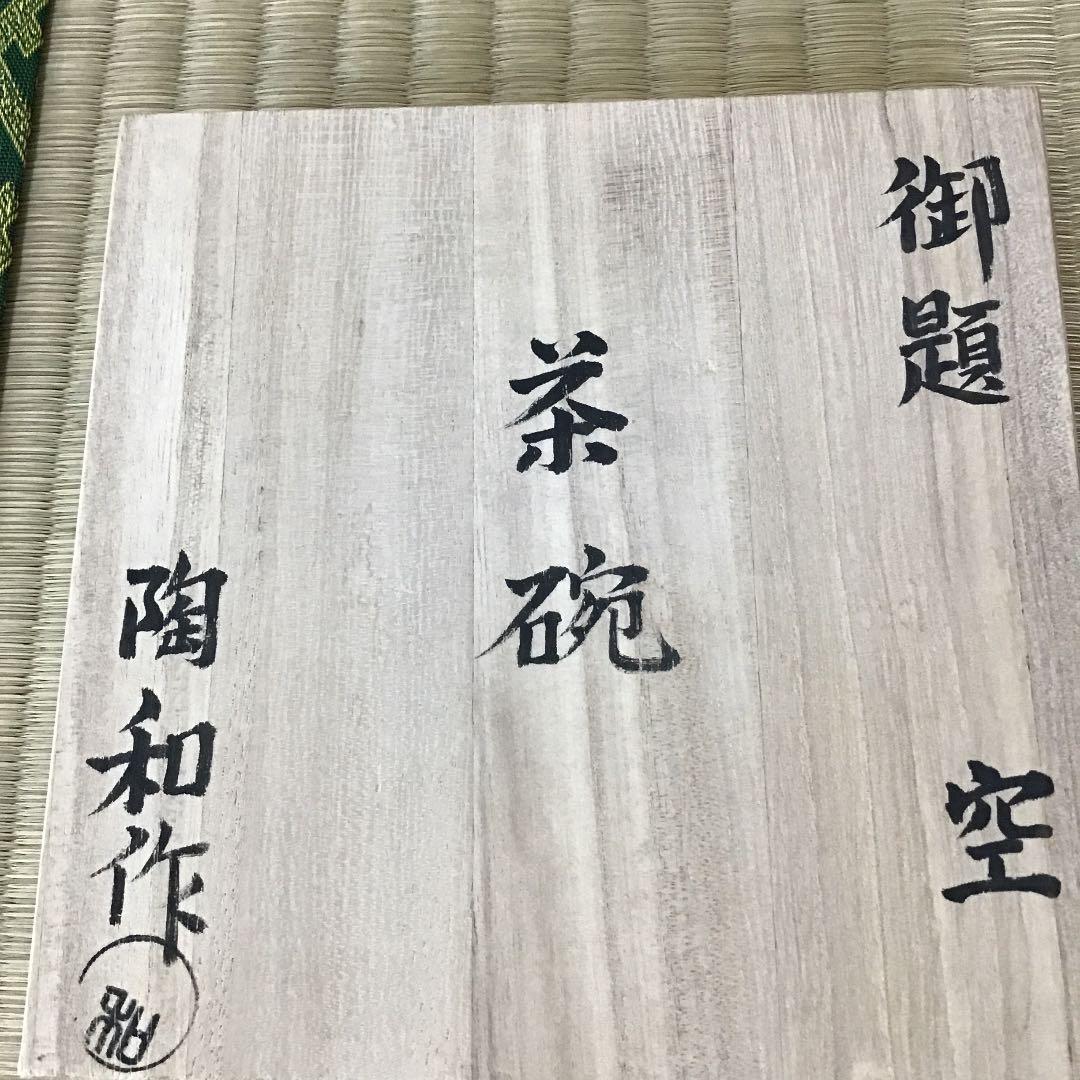 御題 空
茶碗
陶和作